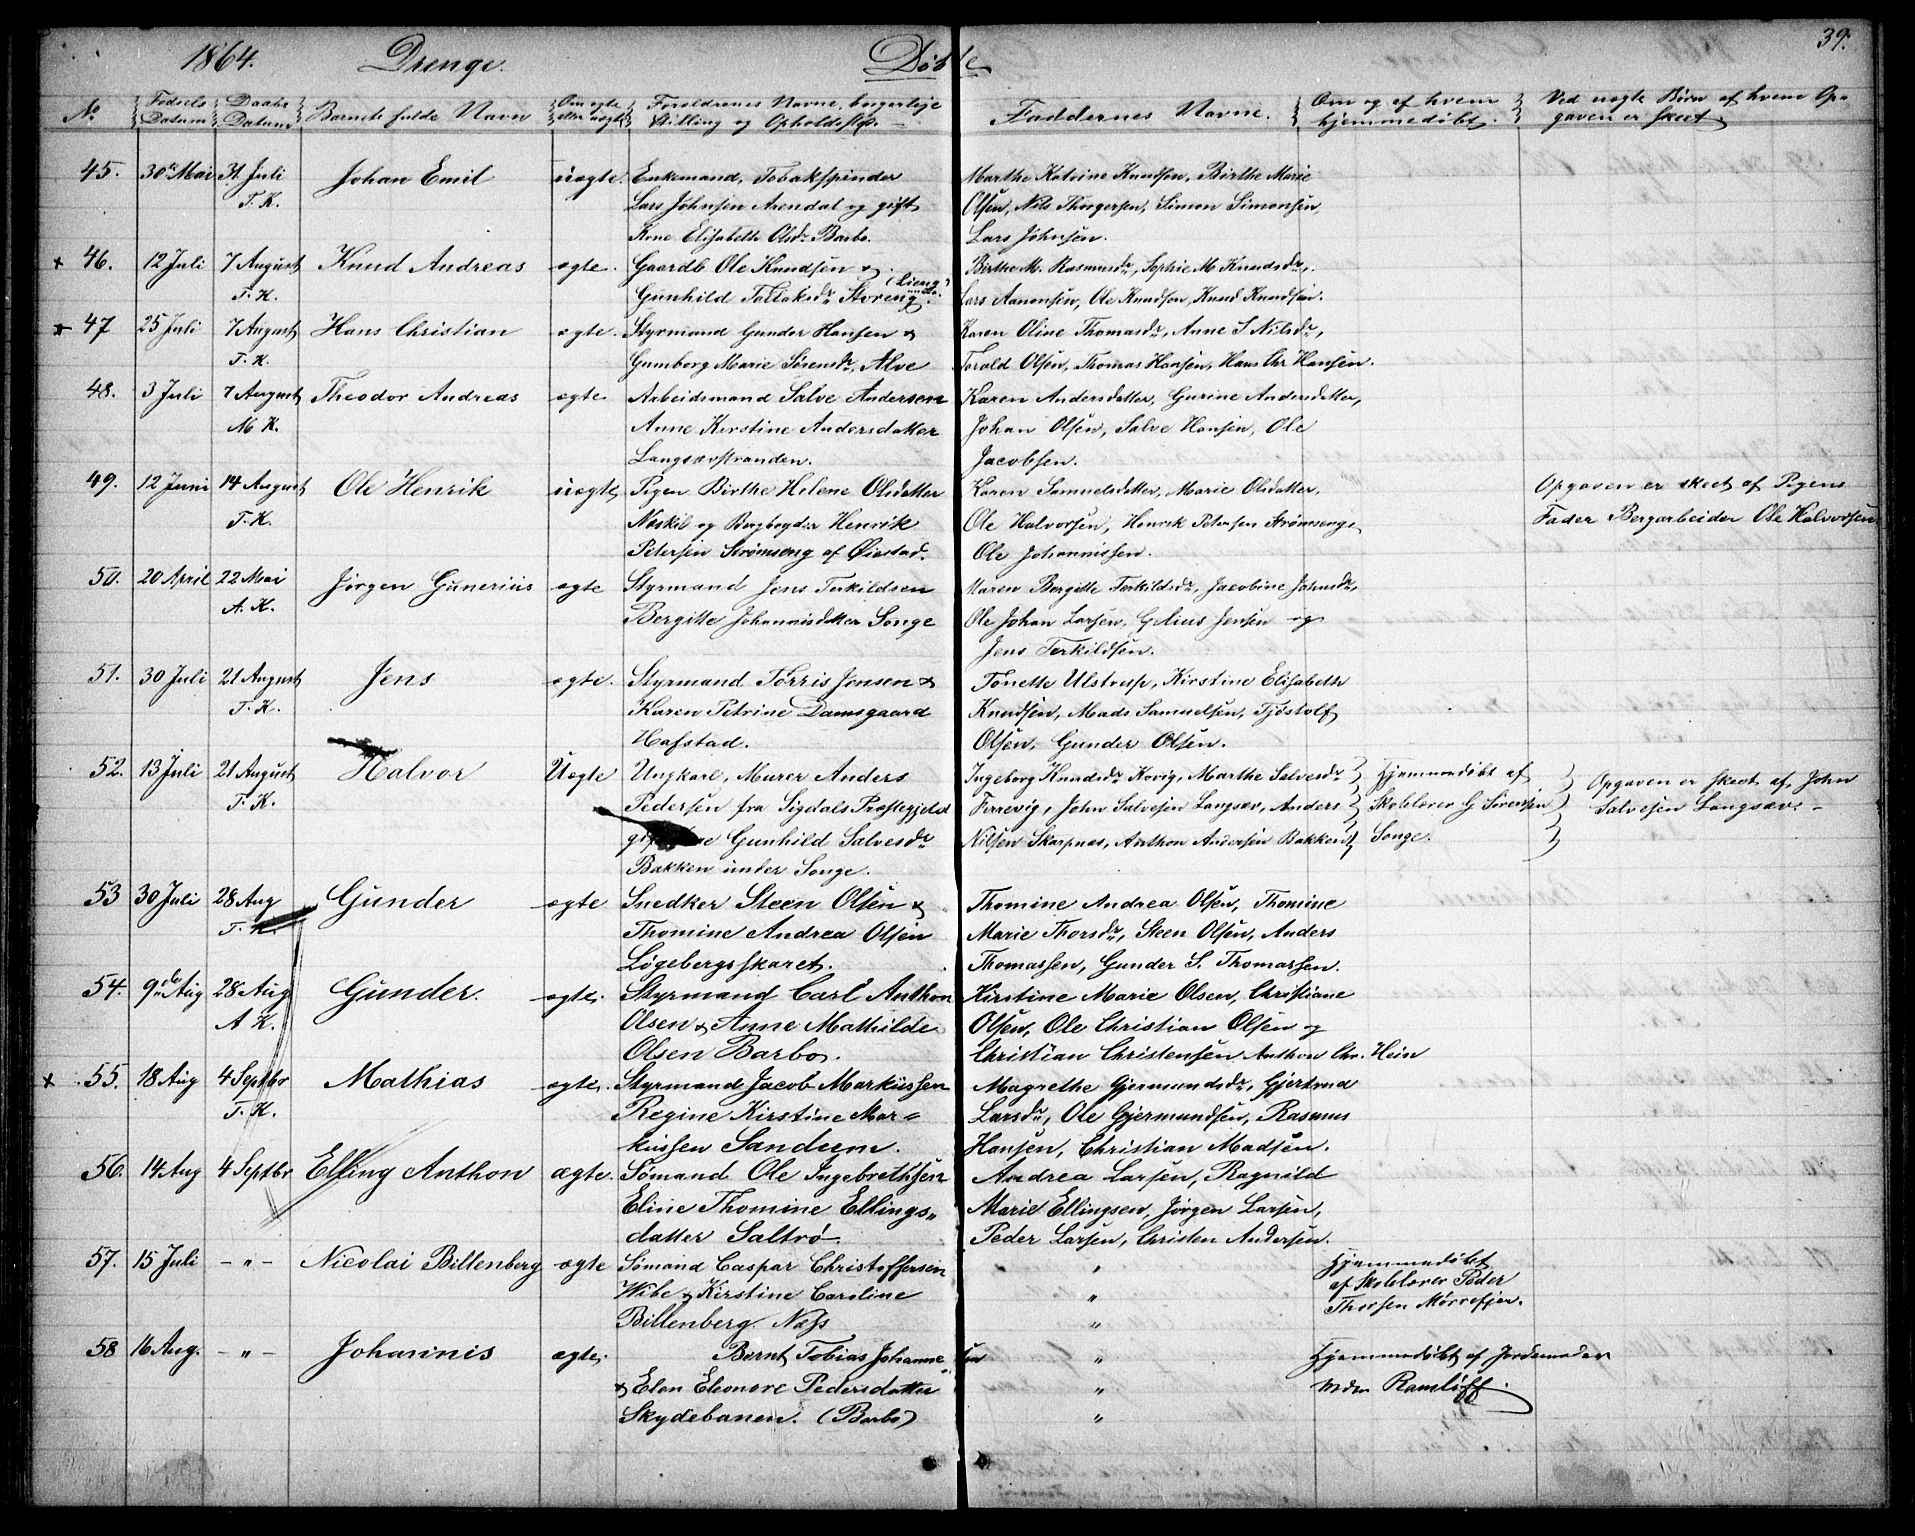 39.
1864. Drenge. Døbte
No Fødsels Datum Daabs Datum Barnets fulde Navn Om ægte eller uægte Forældrenes Navne, borgerlige Stilling og Opholdssted. Faddernes Navne. Om og af hvem hjemmedøbt. Ved uægte Børn af hvem Opgaven er skeet
45. 30te Mai 31 Juli Johan Emil uægte. Enkemand, Tobakspinder Marthe Katrine Knudsen, Birthe Marie
T. K. Lars Johnsen Arendal og gift Olsen, Nils Thorgersen, Simon Simonsen,
Kone Elisabeth Olsdr Barbo. Lars Johnsen.
+ 46. 12 Juli 7 August Knud Andreas ægte. Gaardb Ole Knudsen & Birthe M. Rasmusdr, Sophie M. Knudsdr,
T. K. Gunhild Tallaksdr Støreng. Lars Aanonsen, Ole Knudsen, Knud Knudsen.
+ 47 25 Juli 7 August Hans Christian ægte. Styrmand Gunder Hansen & Karen Oline Thomasdr, Anne S. Nilsdr,
T. K. Gumborg Marie Sørensdr, Alve Torald Olsen, Thomas Hansen, Hans Chr Hansen.
48. 3 Juli 7 August Theodor Andreas ægte Arbeidsmand Salve Andersen Karen Andersdatter, Gurine Andersdatter,
M K. Anne Kirstine Andersdatter Johan Olsen, Salve Hansen, Ole
Langsævstranden. Jacobsen.
49. 12 Juni 14 August Ole Henrik uægte Pigen Birthe Helene Olsdatter Karen Samuelsdatter, Marie Olsdatter, Opgaven er skeet af Pigens
T. K. Næskil og Bergbryder Henrik Ole Halvorsen, Henrik Petersen Strømsenge Fader Bergarbeider Ole Halvorsen
Petersen Strømseng af Øiestad. Ole Johannissen.
50. 20 April 22 Mai Jørgen Gunerius ægte Styrmand Jens Terkildsen Maren Bergitte Terkildsdr, Jacobine Johnsdr,
A. K. Bergitte Johannisdatter Songe Ole Johan Larsen, Gelius Jensen og
Jens Terkildsen.
51. 30 Juli 21 August Jens ægte. Styrmand Tørris Jensen & Tonette Ulstrup, Kirstine Elisabeth
T. K. Karen Petrine Damsgaard Knudsen, Mads Samuelsen, Tjøstolf
Hafstad. Olsen, Gunder Olsen.
52. 13 Juli 21 August Halvor Uægte Ungkarl, Murer Anders Ingeborg Knudsdr Kovig, Marthe Salvesdr Hjemmedøbt af Opgaven er skeet af John
T. K. Pedersen fra Sigdals Præstegjeld Ferrevig, John Salvesen Langsæv, Anders Skolelærer G Sørensen Salvesen Langsæv. –
Gunhild Salvesdr Nilsen Skarpnæs, Anthon Andersen Bakken Songe.
Bakken under Songe.
53 30 Juli 28 Aug Gunder ægte Snedker Steen Olsen & Thomine Andrea Olsen, Thomine
T. K. Thomine Andrea Olsen Marie Thorsdr, Steen Olsen, Anders
Løgebergsskaret. Thomassen, Gunder S. Thomassen.
54. 9de Aug 28 Aug Gunder. ægte. Styrmand Carl Anthon Kirstine Marie Olsen, Christiane
A K. Olsen & Anne Mathilde Olsen, Ole Christian Olsen og
Olsen Barbo. Christian Christensen Anthon Chr. Hein
+ 55. 18 Aug 4 Septbr Mathias ægte. Styrmand Jacob Markussen Magrethe Gjermundsdr, Gjertrud
T. K. Regine Kirstine Mar- Larsdr, Ole Gjermundsen, Rasmus
kussen Sandum. Hansen, Christian Madsen.
56. 14 Aug 4 Septbr Elling Anthon ægte. Sømand Ole Ingebrethsen Andrea Larsen, Ragnild
Eline Thomine Ellings" Marie Ellingsen, Jørgen Larsen,
datter Saltrø. Peder Larsen, Christen Andersen.
57. 15 Juli – " – Nicolai Billenberg ægte Sømand Caspar Christoffersen " Hjemmedøbt
Wibe & Kirstine Caroline " af Skolelærer Peder
Billenberg Næss " Thorsen Mørrefjær.
58 16 Aug. – " – Johannis ægte. Bernt Tobias Johannesen " Hjemmedøbt af Jordemoder
& Elen Eleonore Pedersdatter " Ramløff.
Skydebanen. (Barbo) "